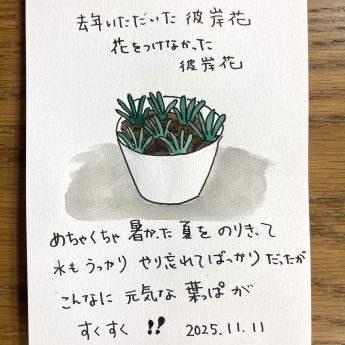 去年いただいた 彼岸花
花をつけなかった
彼岸花
めちゃくちゃ 暑かった 夏を のりきって
水も うっかり やり忘れて ばっかり だったが
こんなに 元気な 葉っぱ が
すくすく !! 2025.11.11